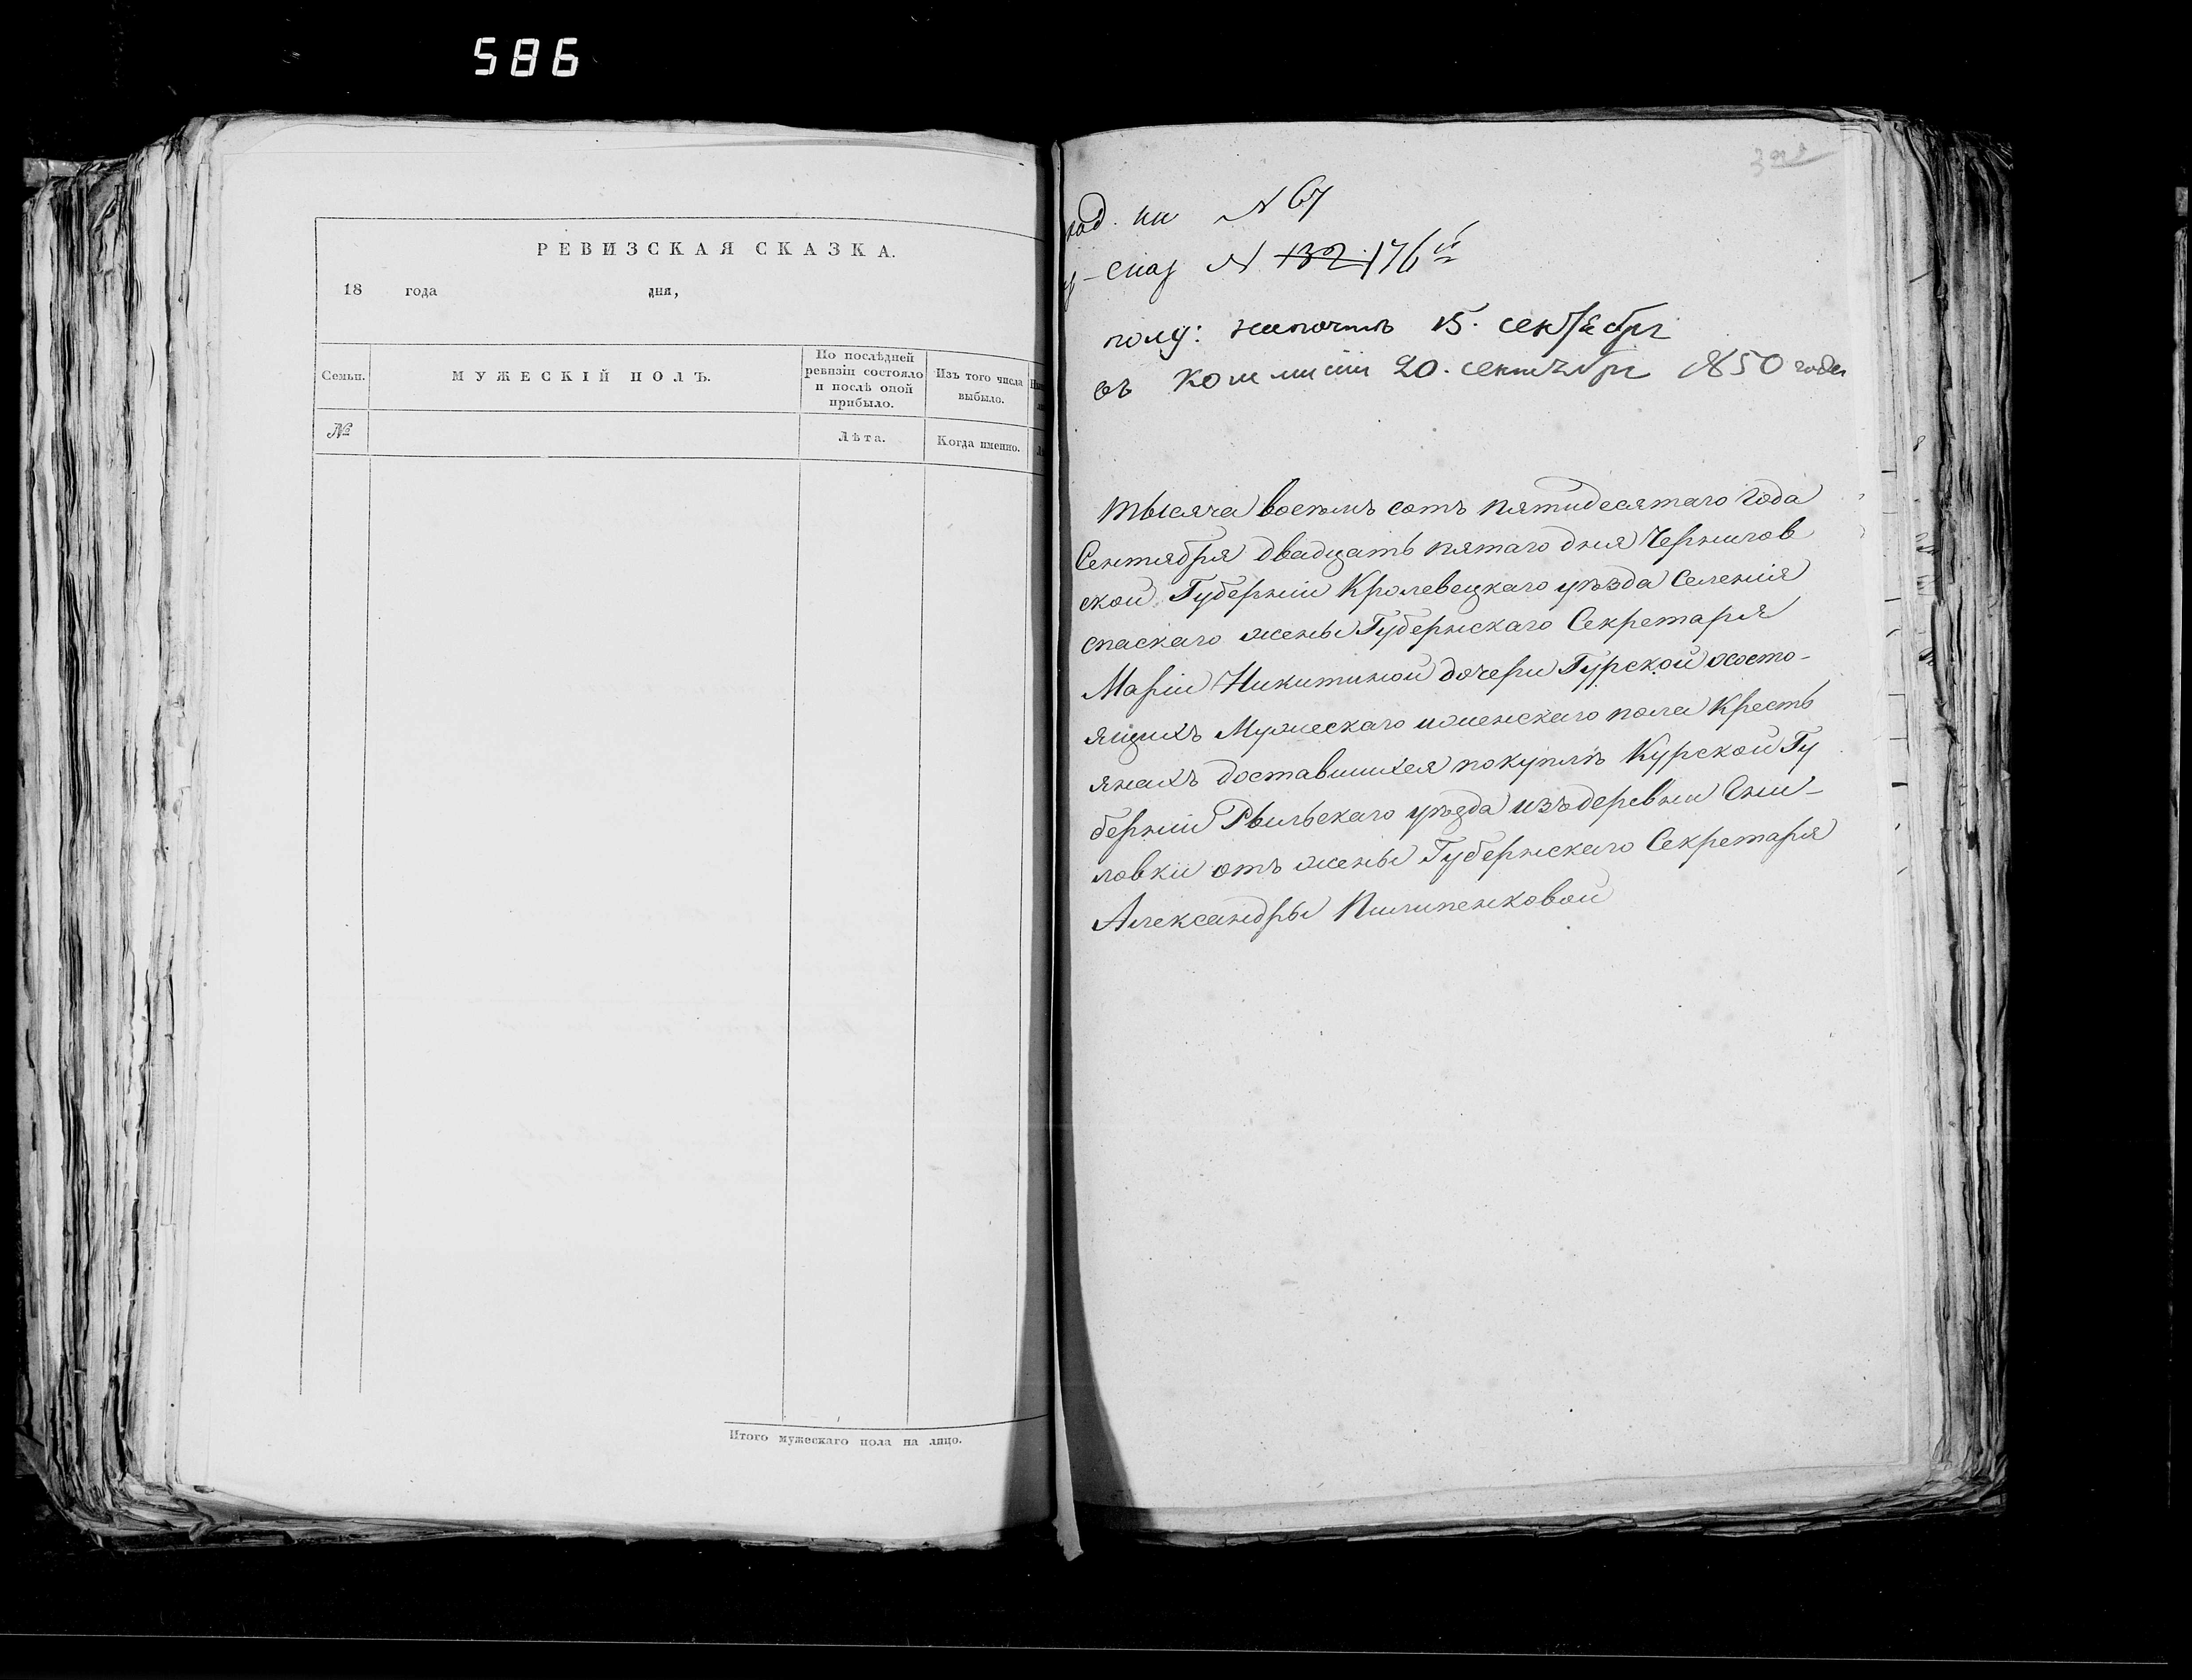 586
РЕВИЗСКАЯ СКАЗКА.
18 года дня,
Семьи.
МУЖЕСКІЙ ПОЛЪ.
По послѣдней ревизіи состояло и послѣ оной прибыло.
Изъ того числа выбыло.
№
Лѣта.
Когда именно.
Итого мужескаго пола на лицо.
N 67
N 132 176
15. сентября
въ Коммисіи 20. сентября 1850 года
тысяча восемь сотъ пятидесятаго года
Сентября двадцать пятаго дня Чернигов
ской Губерніи Кролевецкаго уѣзда Селенія
спаскаго жены Губернскаго Секретаря
Маріи Никитиной дочери Гурской ососто-
ящихъ Мужескаго иженскаго пола Кресть
янахъ доставшихся покупкѣ Курской Гу
берніи Рыльскаго уѣзда изъ деревни Сни-
ловки отъ жены Губернскаго Секретаря
Александры Пилипенковой